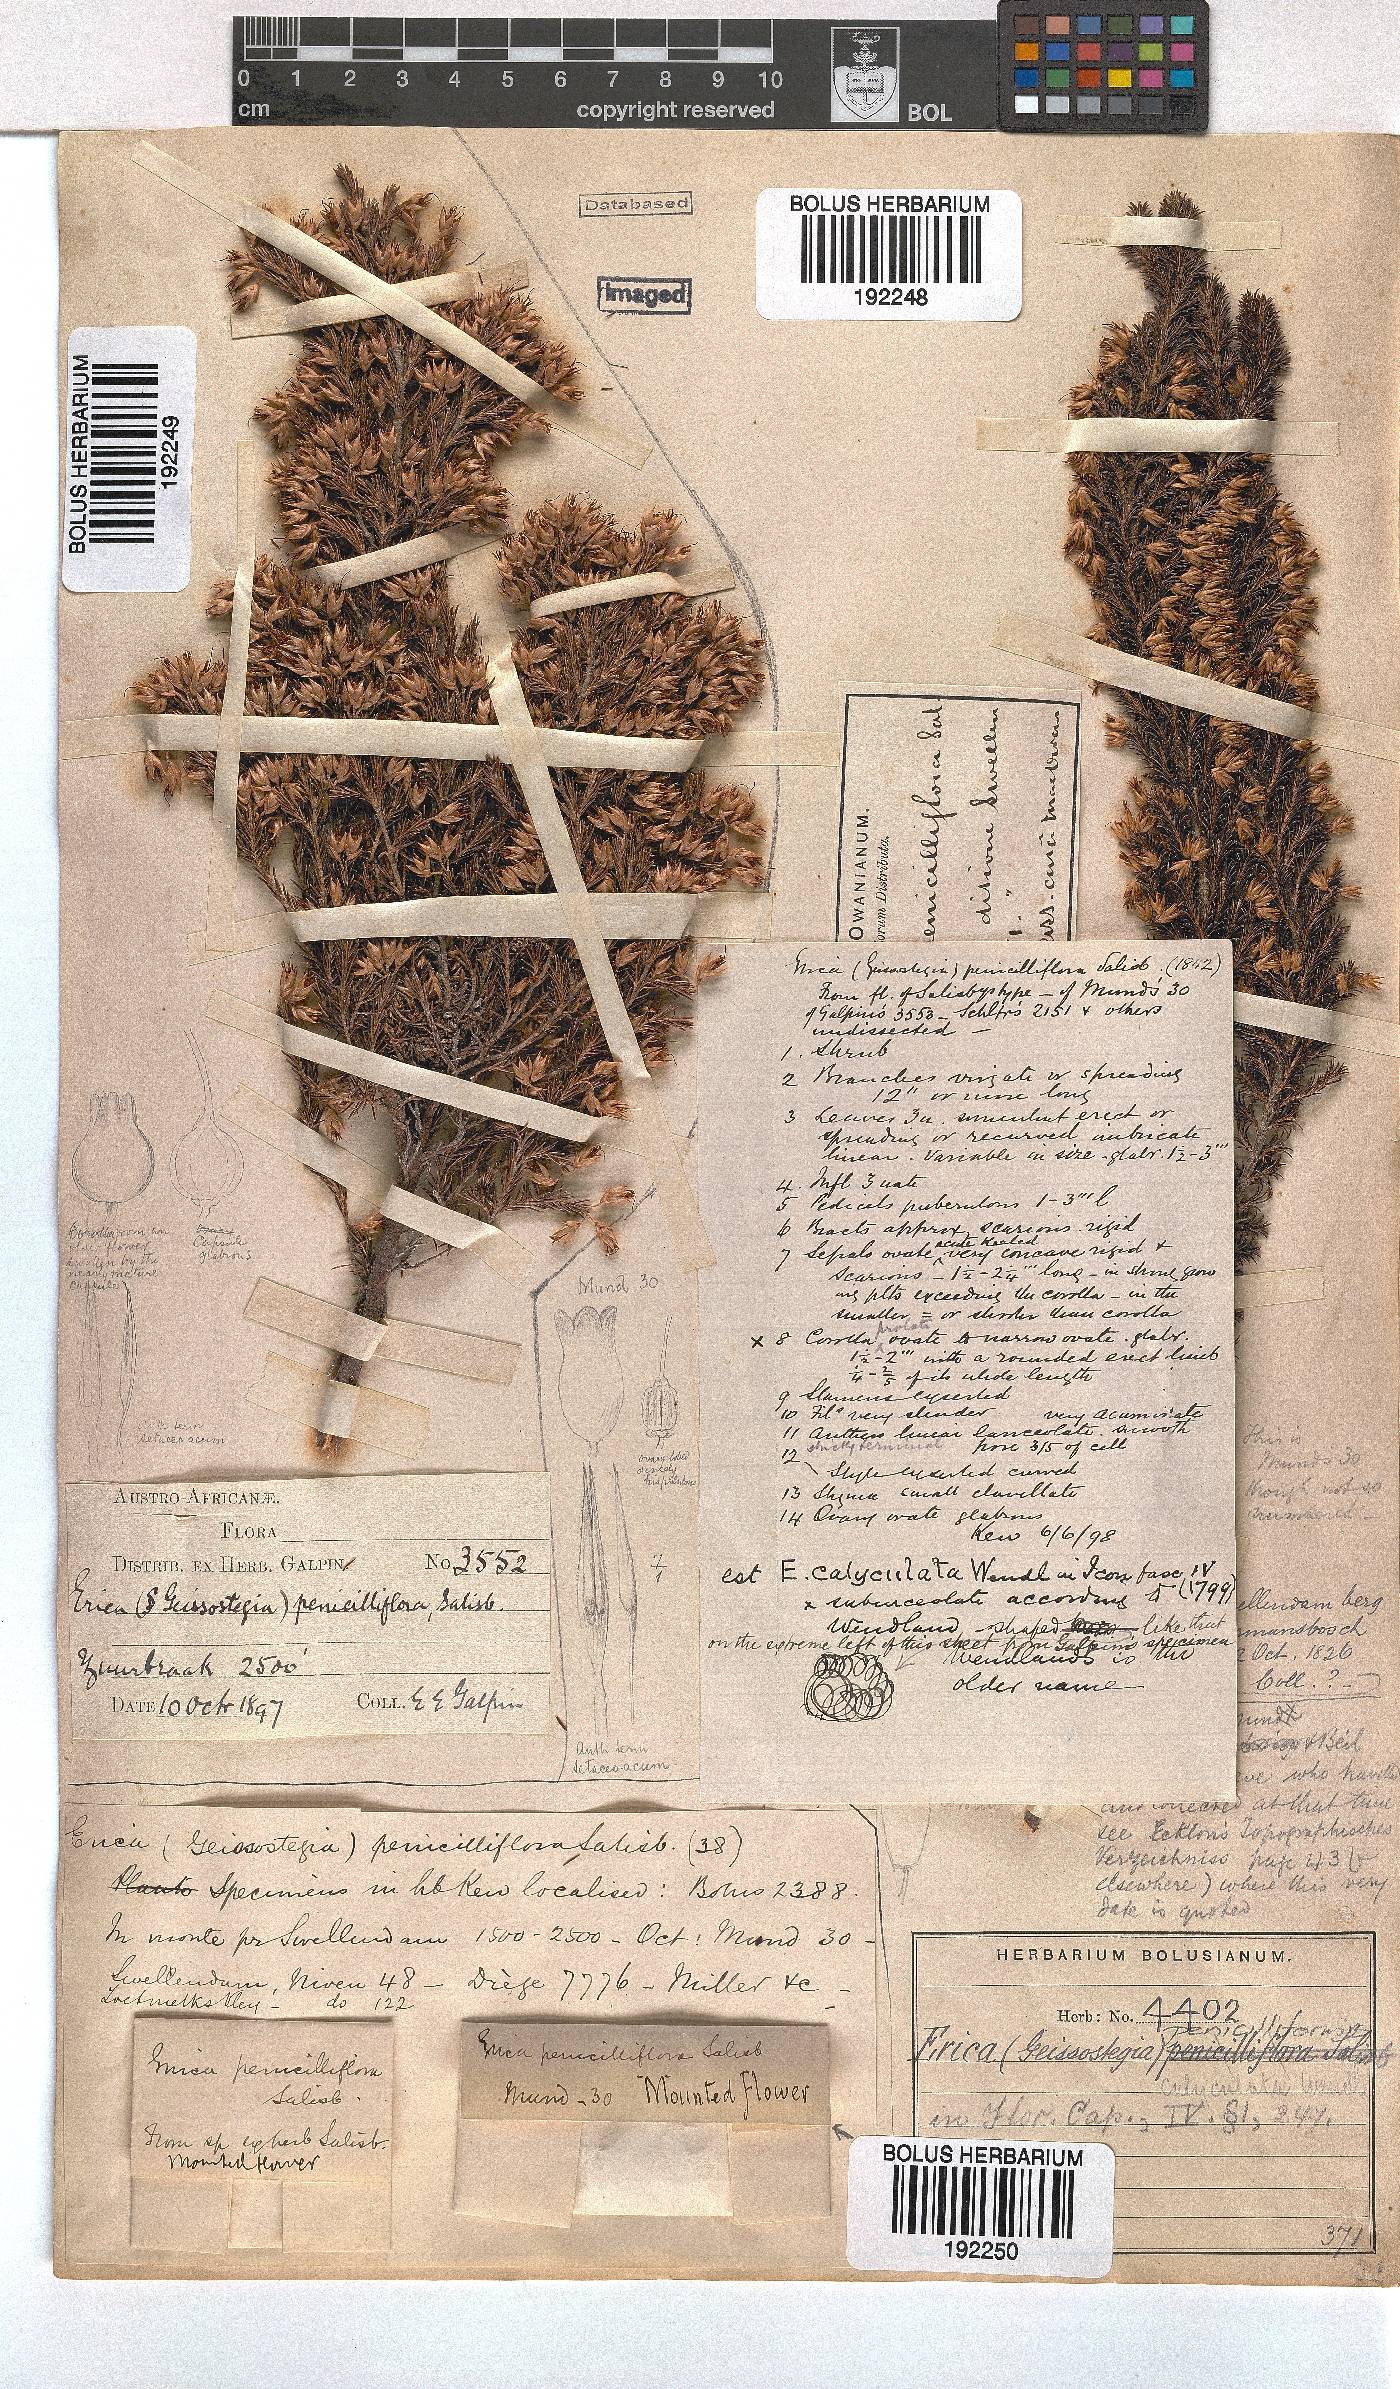 0 1 2 3 4 5 6 7 8 9 10
cm
copyright reserved
BOL
Databased
Imaged
BOLUS HERBARIUM
192248
BOLUS HERBARIUM
192249
OWANIANUM.
orum Distributa.
enicilliflora Sal
ditione Swellen
Erica (Geissostegia) penicilliflora Salisb. (1842)
From fl. of Salisbys type - of Mund's 30
of Galpin's 3553 - Schltr's 2151 & others
undissected -
1. Shrub
2 Branches virgate or spreading
12" or more long
3 Leaves 3n. succulent erect or
spreading or recurved imbricate
linear. Variable in size. glabr. 1½-3'''
4. Infl 3 nate
5 Pedicels puberulous 1-3''' l
6 Bracts approx, scarious rigid
7 Sepals ovate acute keeled very concave rigid &
scarious - 1½-2¼''' long - in strong grow
ing plts exceeding the corolla - in the
smaller = or shorter than corolla
x 8 Corolla ovate to narrow ovate. glabr.
1½-2''' with a rounded erect limb
¼-⅖ of its whole length
9 Stamens exserted
10 Fil.s very slender very acuminate
11 Anthers linear lanceolate. smooth
12 pore 3/5 of cell
Style exserted curved
13 Stigma small clavellate
14 Ovary ovate glabrous
Kew 6/6/98
est E. calyculata Wendl in Icon fasc. IV
(1799)
x suburceolate according to
Wendland, - shaped like that
on the extreme left of this sheet from Galpin's specimen
Wendland's is the
older name
Corolla from an
older flower
by the
nearly mature
capsule
Capsule
glabrous
setaceo-acum
Mund 30
Anth. tenui
setaceo-acum
AUSTRO AFRICANÆ.
FLORA
DISTRIB. EX HERB. GALPIN No 3552
Erica (§ Geissostegia) penicilliflora, Salisb.
Zuurbraak 2500'
DATE 10 Octr 1897 COLL. E E Galpin
this is
Mund's 30
though not so
numbered -
ellendam berg
mansbosch
Oct. 1826
Coll. ? -
& Beil
who travelled
and collected at that time
see Ecklon's Topographisches
Verzeichniss page 43 (&
elsewhere) where this very
date is quoted
Erica (Geissostegia) penicilliflora Salisb. (38)
Plants Specimens in hb Kew localised: Bolus 2388.
In monte pr Swellendam 1500-2500 - Oct: Mund 30 -
Swellendam, Niven 48 - Drège 7776 - Miller &c -
Zoetmelks Vley - do 122
Erica penicilliflora
Salisb.
From sp ex herb Salisb.
Mounted flower
Erica penicilliflora Salisb
Mund - 30 Mounted flower
HERBARIUM BOLUSIANUM.
Herb: No. 4402
penicilliformis
Erica (Geissostegia) penicilliflora Salisb
calyculata Wendl
in Flor. Cap., IV. §1, 247.
371
BOLUS HERBARIUM
192250